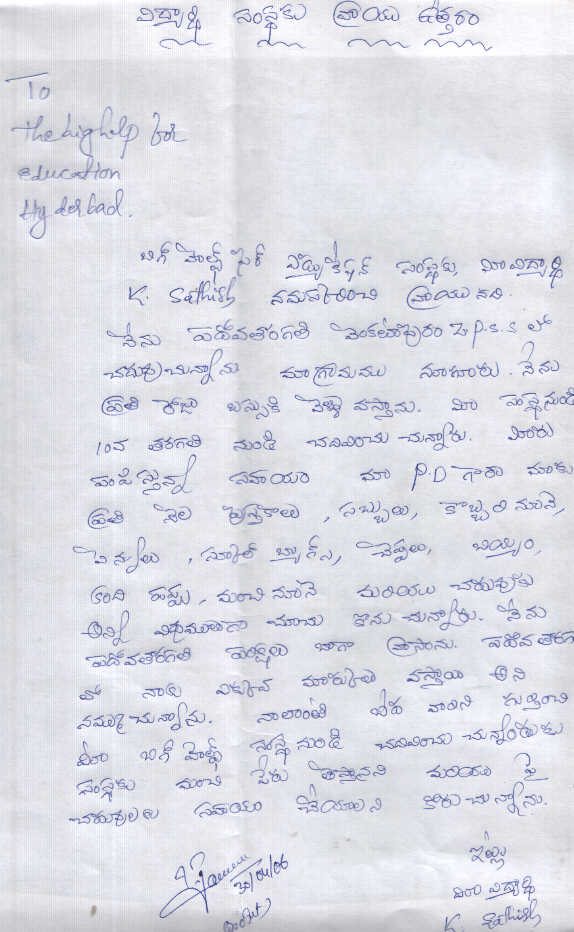 విద్యార్థి సంస్థకు వ్రాయు ఉత్తరం
To
the big help for
education
Hyderbad.
బిగ్ హెల్ప్ ఫర్ ఎడ్యుకేషన్ సంస్థకు, మీ విద్యార్థి
K. Sathish నమస్కరించి వ్రాయునది.
నేను పదవతరగతి వెంకటాపురం Z.P.S.S లో
చదువుచున్నాను మా గ్రామము నూగూరు. నేను
ప్రతి రోజు బస్సుకి వెళ్ళి వస్తాను. మీ సంస్థనుండి
10వ తరగతి నుండి చదివించు చున్నారు. మీరు
పంపిస్తున్న సహాయం మా P.D గారు మాకు
ప్రతి నెల పుస్తకాలు, సబ్బులు, కొబ్బరి నూనె,
పెన్నులు, స్కూల్ బ్యాగ్స్, చెప్పులు, బియ్యం,
కంది పప్పు, మంచి నూనె మరియు చదువుకు
అన్ని విధములుగా చూచు కొను చున్నారు. నేను
పదవతరగతి పరీక్షలు బాగా వ్రాసాను. పదవతరగతి
లో నాకు ఎక్కువ మార్కులు వస్తాయి అని
నమ్ము చున్నాను. నాలాంటి బీద వారిని గుర్తించి
మీరు బిగ్ హెల్ప్ సంస్థ నుండి చదివించు చున్నందుకు
సంస్థకు మంచి పేరు తెస్తానని మరియు పై
చదువులకు సహాయం చేయాలని కోరు చున్నాను.
ఇట్లు
మీ విద్యార్థి
K. Sathish
30/04/06